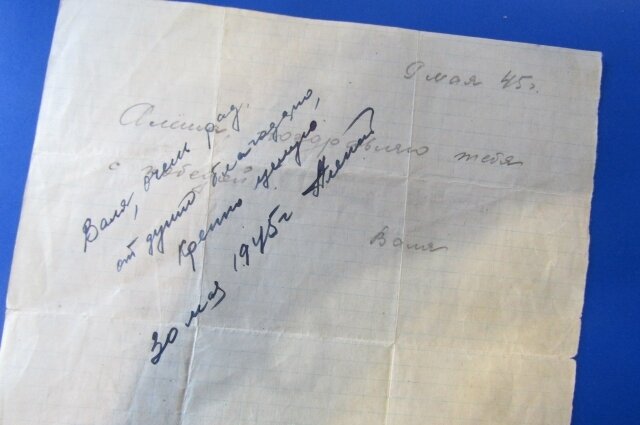 9 мая 45г.
Алёша, поздравляю тебя
с победой
Валя
Валя, очень рад.
от души благодарю,
Крепко целую.
30 мая 1945г